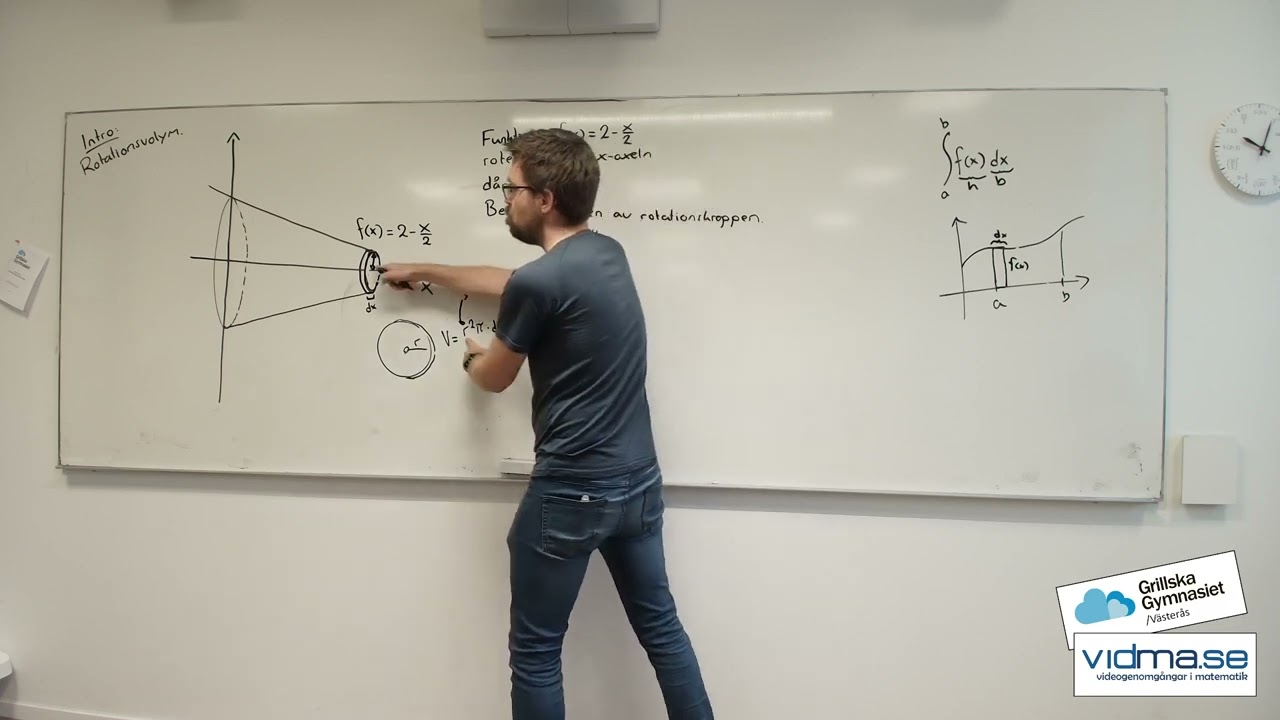 Intro:
Rotationsvolym.
f(x) = 2 - x/2
x
dx
r
V = r²π · d
f(x) = 2 - x/2
x-axeln
då
Be
en av rotationskroppen.
b
∫ f(x) dx
a
h b
dx
f(x)
a b
Grillska
Gymnasiet
/Västerås
vidma.se
videogenomgångar i matematik